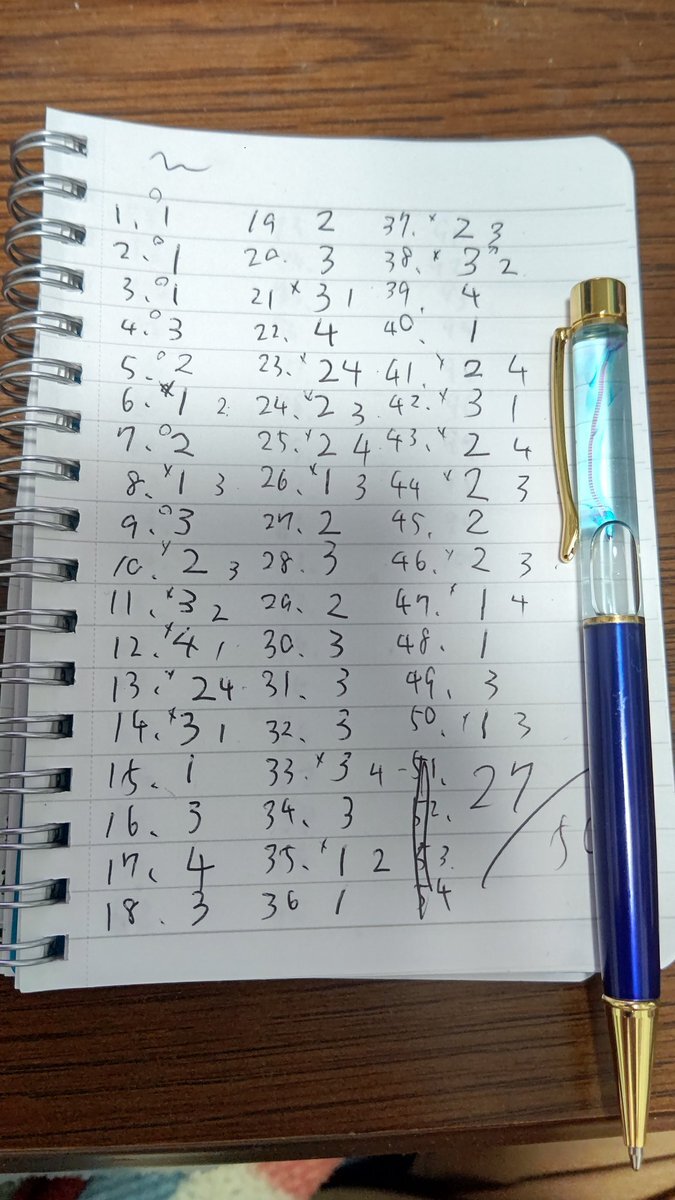 1. ○ 1
2. ○ 1
3. ○ 1
4. ○ 3
5. ○ 2
6. × 1 2
7. ○ 2
8. × 1 3
9. ○ 3
10. × 2 3
11. × 3 2
12. × 4 1
13. × 2 4
14. × 3 1
15. 1
16. 3
17. 4
18. 3
19 2
20. 3
21 × 3 1
22. 4
23. × 2 4
24. × 2 3
25. × 2 4
26. × 1 3
27. 2
28. 3
29. 2
30. 3
31. 3
32. 3
33. × 3 4
34. 3
35. × 1 2
36 1
37. × 2 3
38. × 3 2
39. 4
40. 1
41. × 2 4
42. × 3 1
43. × 2 4
44 × 2 3
45. 2
46. × 2 3
47. × 1 4
48. 1
49. 3
50. × 1 3
51.
52.
53.
54
27